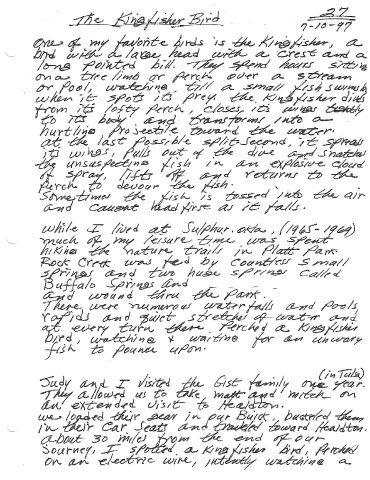 The Kingfisher Bird
27
7-10-97
One of my favorite birds is the Kingfisher, a
bird with a large head with a crest and a
long pointed bill. They spend hours sitting
on a tree limb or perch over a stream
or pool, watching till a small fish swims
when it spots its prey, the Kingfisher dives
from its lofty perch, closes its wings
to its body and transforms into a
hurtling projectile toward the water
at the last possible split-second, it spreads
its wings, pulls out of the dive and snatches
the unsuspecting fish in an explosive cloud
of spray, lifts off and returns to the
perch to devour the fish.
Sometimes the fish is tossed into the air
and caught head first as it falls.
While I lived at Sulphur, Okla, (1965-1969)
much of my leisure time was spent
hiking the nature trails in Platt Park
Rock Creek was fed by countless small
springs and two huge springs called
Buffalo Springs and
and wound thru the park.
There were numerous waterfalls and pools,
rapids and quiet stretches of water and
at every turn there perched a Kingfisher
bird, watching & waiting for an unwary
fish to pounce upon.
(in Tulsa)
Judy and I visited the Gist family one year.
They allowed us to take matt and mitch on
an extended visit to Healdton.
we loaded their gear in our Buick, buckled them
in their Car Seats and traveled toward Healdton.
about 30 miles from the end of our
Journey, I spotted a Kingfisher bird, perched
on an electric wire, intently watching a